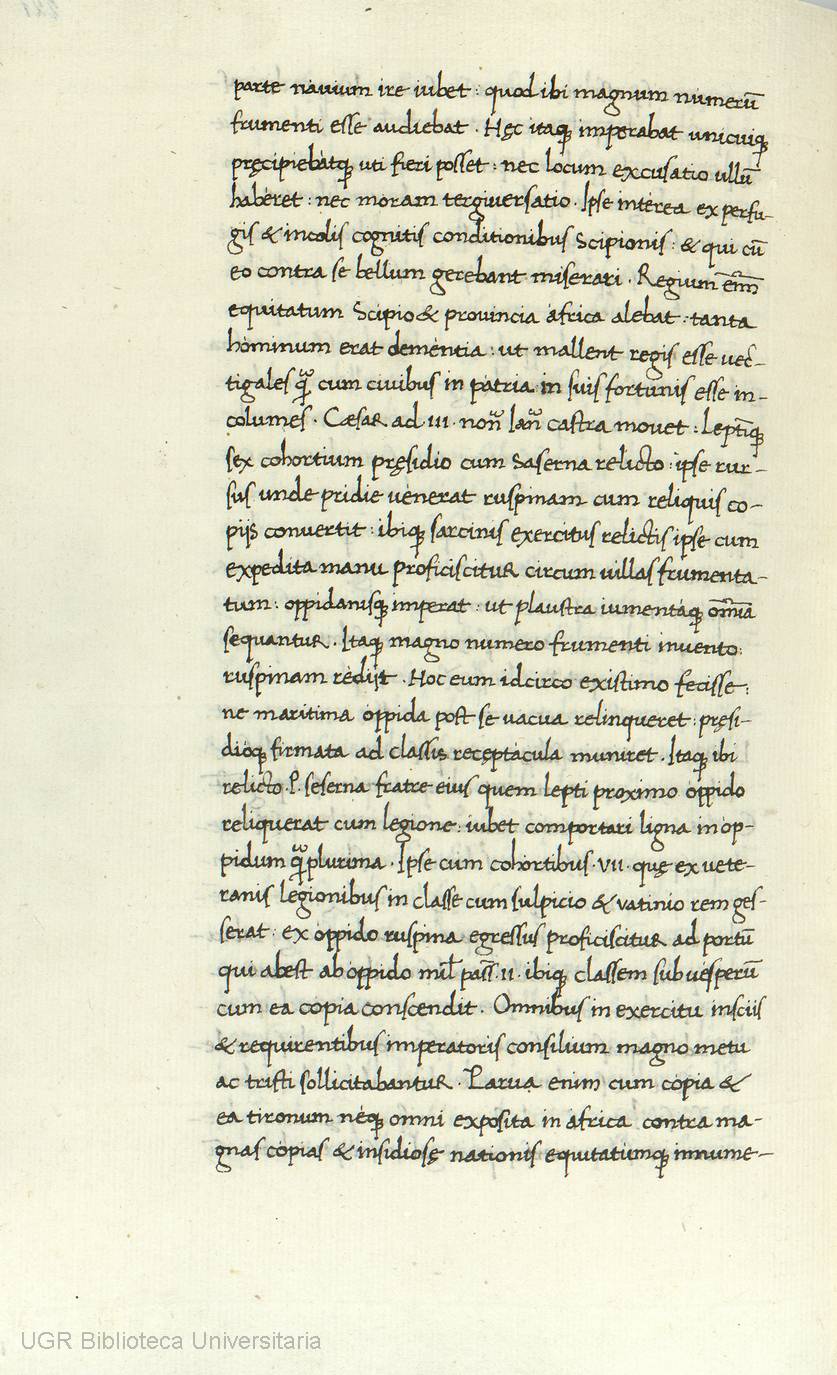 parte nauium ire iubet : quod ibi magnum numerũ
frumenti esse audiebat . Hęc itaqꝫ imperabat unicuiqꝫ
pręcipiebatqꝫ uti fieri posset : nec locum excusatio ullũ
haberet : nec moram tergiuersatio . Ipse interea ex perfu-
gis & incolis cognitis conditionibus Scipionis : & qui cũ
eo contra se bellum gerebant miserari . Regium em̃
equitatum Scipio & prouincia africa alebat : tanta
hominum erat dementia : ut mallent regis esse uec-
tigales qͣ̃ cum ciuibus in patria in suis fortunis esse in-
columes . Cæsar ad III . non̄ Ian̄ castra mouet : Leptiqꝫ
sex cohortium pręsidio cum Saserna relicto : ipse rur-
sus unde pridie uenerat ruspinam cum reliquis co-
pijs conuertit : ibiqꝫ sarcinis exercitus relictis ipse cum
expedita manu proficiscitur circum uillas frumenta-
tum : oppidanisqꝫ imperat : ut plaustra iumentaqꝫ om̃ia
sequantur . Itaqꝫ magno numero frumenti inuento :
ruspinam redijt . Hoc eum idcirco existimo fecisse :
ne maritima oppida post se uacua relinqueret : pręsi-
dioqꝫ firmata ad classis receptacula muniret . Itaqꝫ ibi
relicto . P . seserna fratre eius quem lepti proximo oppido
reliquerat cum legione : iubet comportari ligna in op-
pidum qͣ̃ plurima . Ipse cum cohortibus . VII . quę ex uete-
ranis legionibus in classe cum sulpicio & vatinio rem ges-
serat : ex oppido ruspina egressus proficiscitur ad portũ
qui abest ab oppido mil̃ pass̃ . II . ibiqꝫ classem sub uesperũ
cum ea copia conscendit . Omnibus in exercitu insciis
& requirentibus imperatoris consilium magno metu
ac tristi sollicitabantur . Parua enim cum copia &
ea tironum neqꝫ omni exposita in africa contra ma-
gnas copias & insidiosę nationis equitatumqꝫ innume-
UGR Biblioteca Universitaria